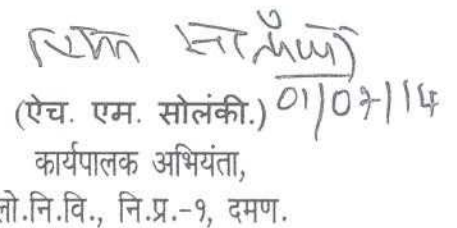 (ऐच. एम. सोलंकी.) 01/07/14
कार्यपालक अभियंता,
लो.नि.वि., नि.प्र.-१, दमण.